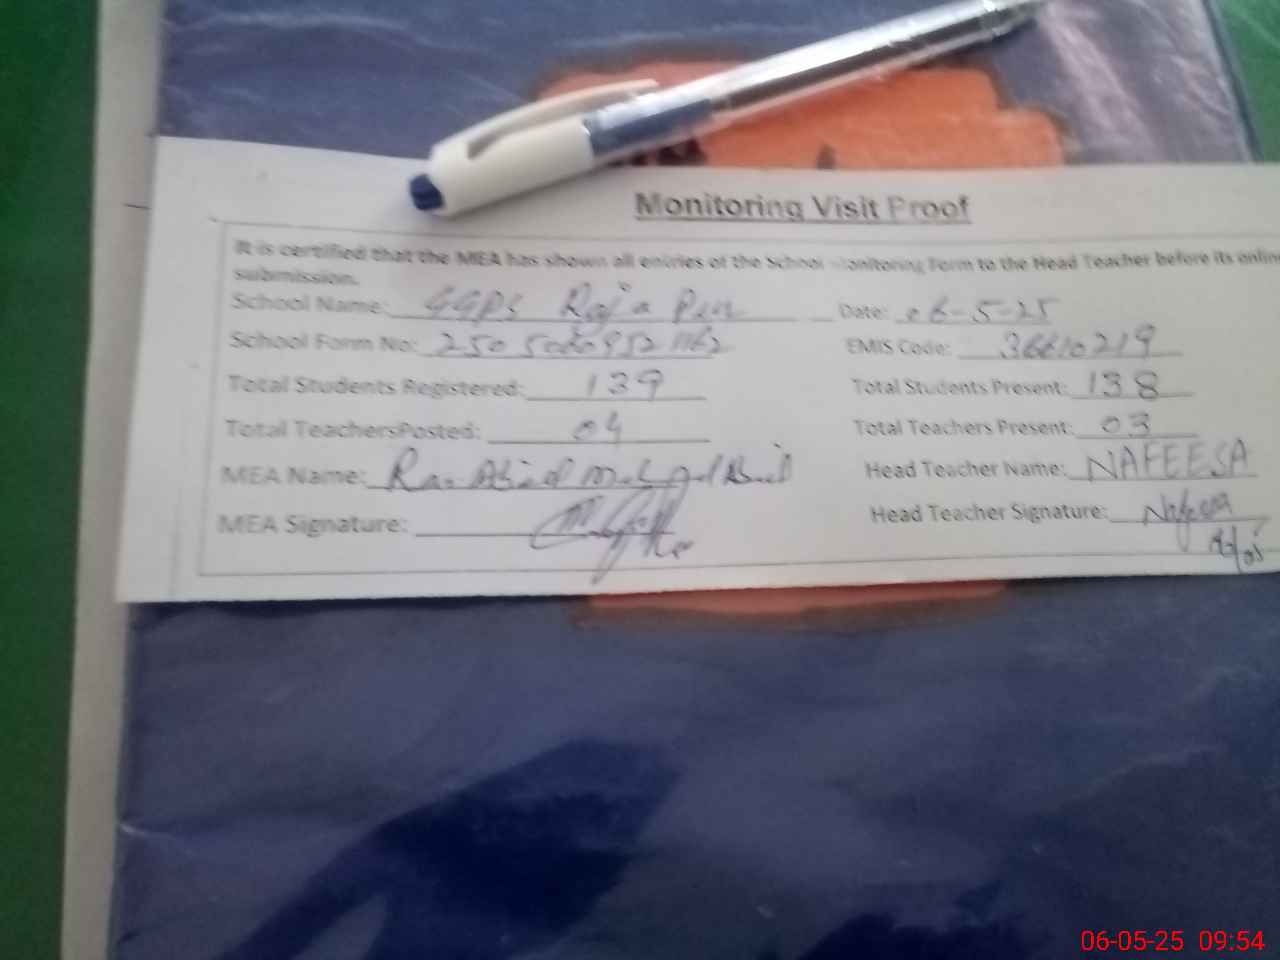 Monitoring Visit Proof
It is certified that the MEA has shown all entries of the School Monitoring Form to the Head Teacher before its online
submission.
School Name: GGPS Raja Pur Date: 06-5-25
School Form No: EMIS Code: 36610219
Total Students Registered: 139 Total Students Present: 138
Total TeachersPosted: 04 Total Teachers Present: 03
MEA Name: Head Teacher Name: NAFEESA
MEA Signature: Head Teacher Signature: Nafeesa
06-05-25 09:54